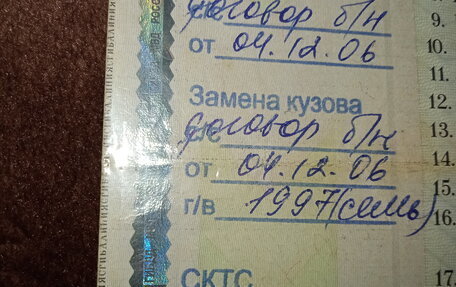 договор б/н 9.
от 04.12.06 10.
11.
Замена кузова 12.
договор б/н 13.
14.
от 04.12.06 15.
г/в 1997(семь) 16.
СКТС 17.